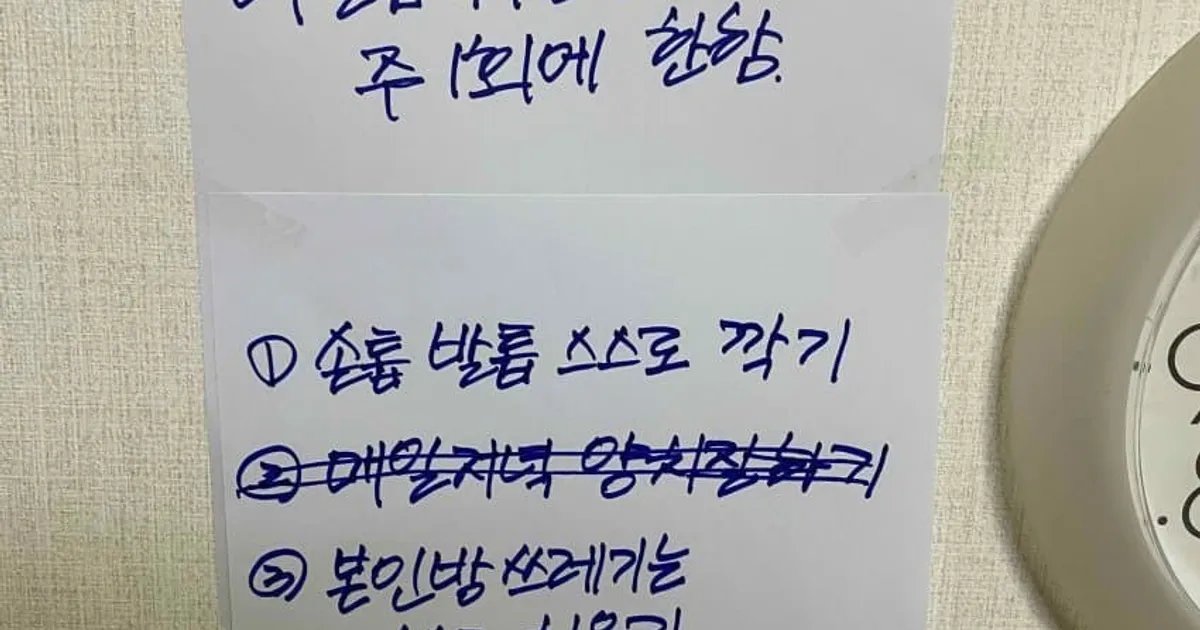 주 1회에 한함.
① 손톱 발톱 스스로 깎기
② 매일저녁 양치질하기
③ 본인방 쓰레기는